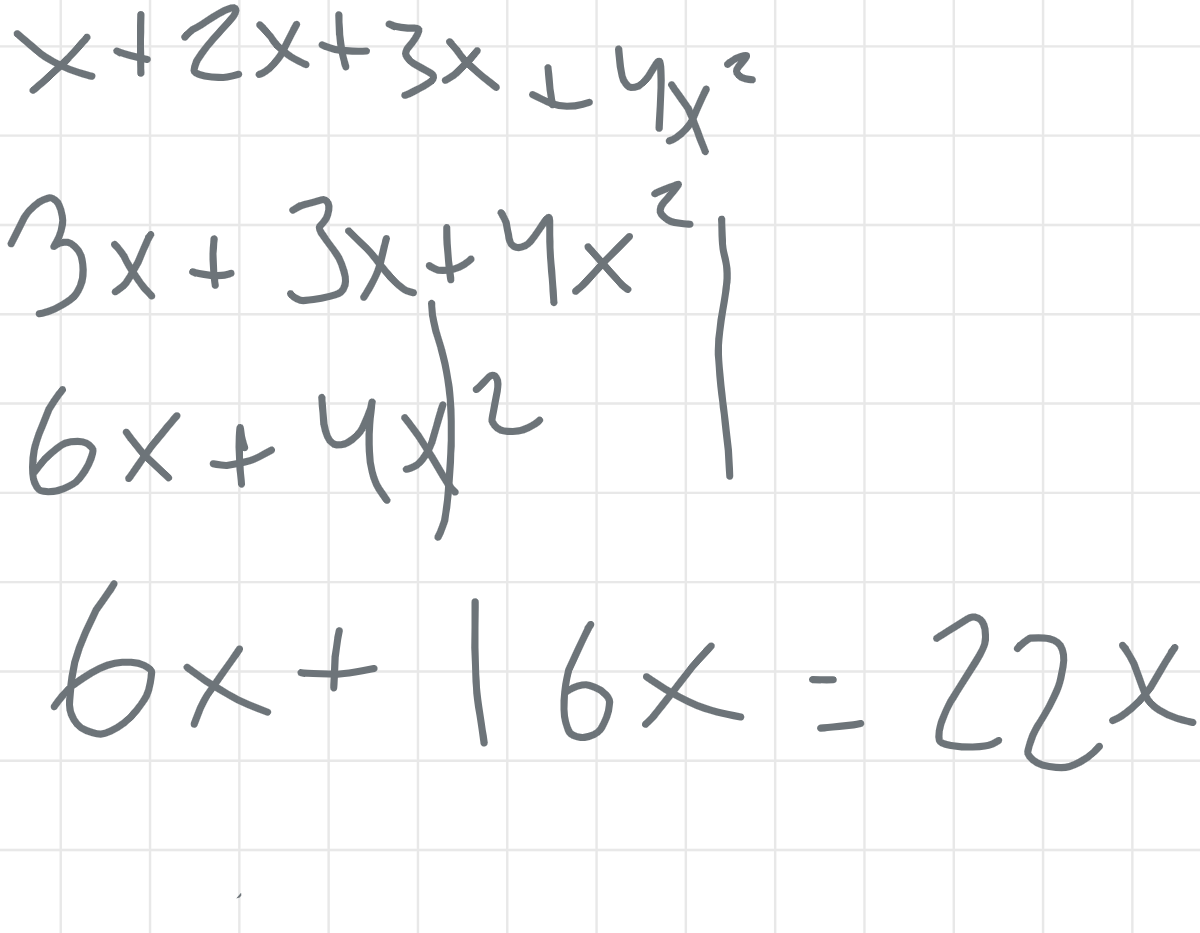 x+2x+3x+4x²
3x+3x+4x²
6x+4x²
6x+16x=22x